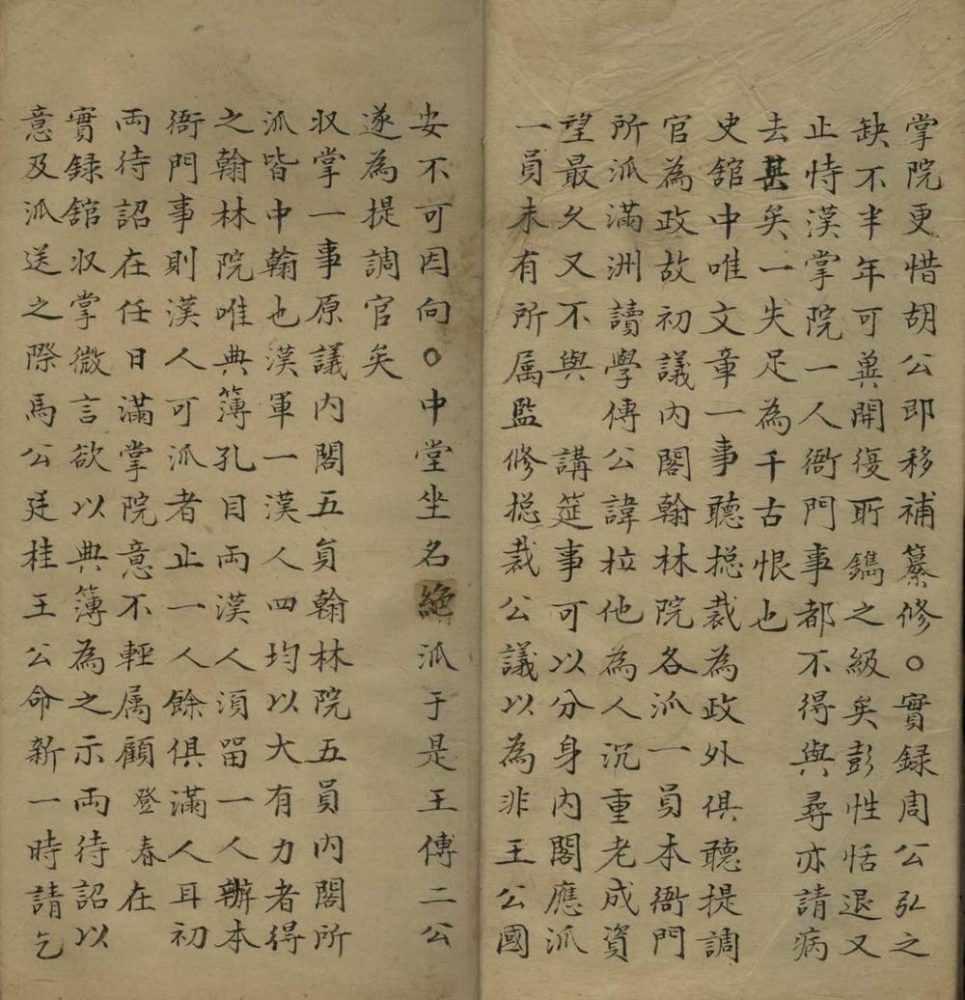 掌院更惜胡公即移補纂修○實録周公弘之
缺不半年可冀開復所鐫之級矣彭性恬退又
止恃漢掌院一人衙門事都不得與尋亦請病
去甚矣一失足為千古恨也
史舘中唯文章一事聽揔裁為政外俱聽提調
官為政故初議內閣翰林院各派一員本衙門
所派滿洲讀學傅公諱拉他為人沉重老成資
望最久又不與講筵事可以分身內閣應派
一員未有所属監修揔裁公議以為非王公國
安不可因向○中堂坐名絶派于是王傅二公
遂為提調官矣
収掌一事原議內閣五員翰林院五員內閣所
派皆中翰也漢軍一漢人四均以大有力者得
之翰林院唯典簿孔目両漢人湏畱一人辦本
衙門事則漢人可派者止一人餘俱滿人耳初
両待詔在任日滿掌院意不輕属顧登春在
實録舘収掌微言欲以典簿為之示両待詔以
意及派送之際馬公廷桂王公命新一時請乞